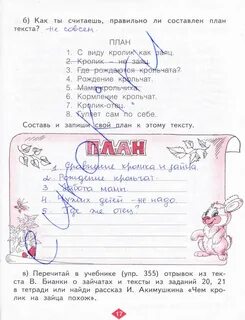 б) Как ты считаешь, правильно ли составлен план
текста? -не совсем.
ПЛАН
1. С виду кролик как заяц.
2. Кролик – не заяц.
3. Где рождаются крольчата?
4. Рождение крольчат.
5. Мама-крольчиха.
6. Кормление крольчат.
7. Кролик-отец.
8. Гуляет сам по себе.
Составь и запиши свой план к этому тексту.
ПЛАН
1. Сравнение кролика и зайца.
2. Рождение крольчат.
3. Забота мамы.
4. Чужих детей - не надо.
5. Где же отец?
в) Перечитай в учебнике (упр. 355) отрывок из тек-
ста В. Бианки о зайчатах и тексты из заданий 20, 21
в тетради или найди рассказ И. Акимушкина «Чем кро-
лик на зайца похож».
17